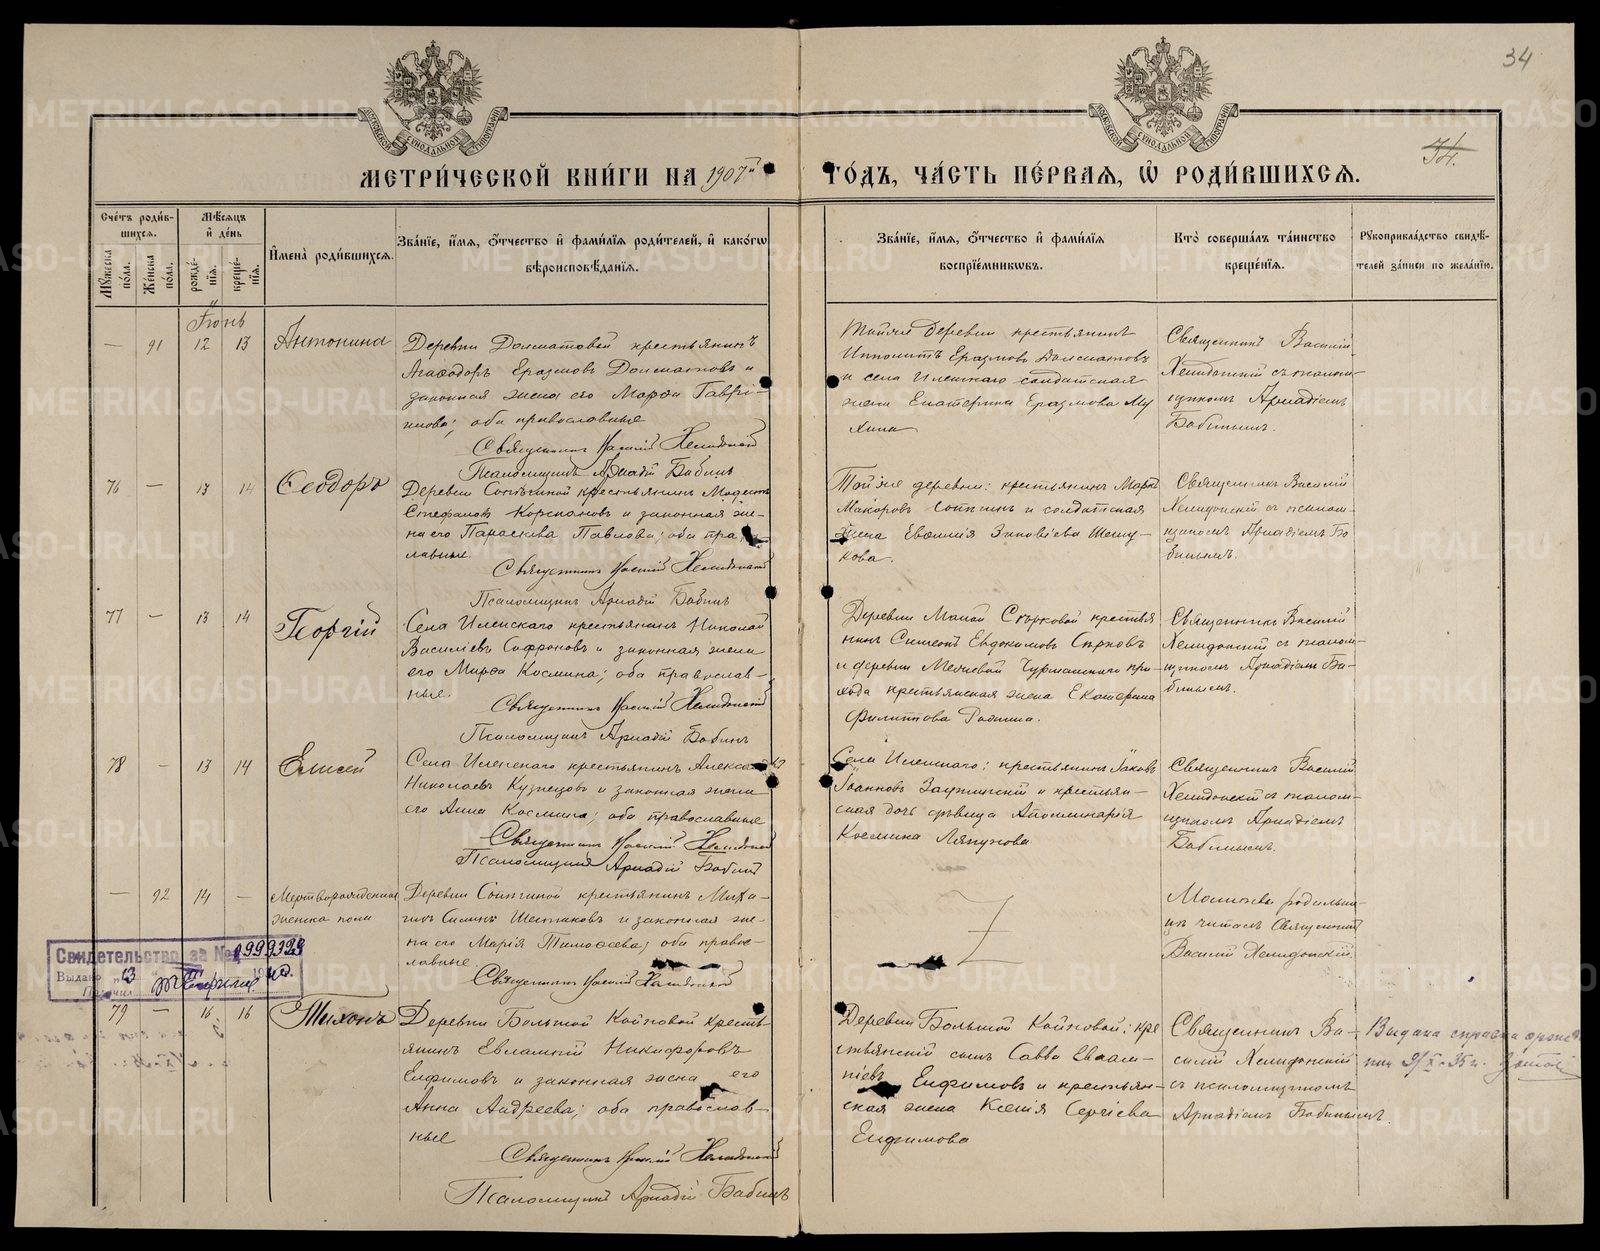 34
34.
МЕТРИ́ЧЕСКОЙ КНИ́ГИ НА 1907й ГО́ДЪ, ЧА́СТЬ ПЕ́РВАЯ, Ѽ РОДИ́ВШИХСЯ.
Сче́тъ роди́в-
шихся.
Мꙋ́жеска по́ла.
Же́нска по́ла.
Мѣ́сяцъ
и҆ де́нь
рожде́-
нїя.
креще́-
нїя.
И҆мена̀ роди́вшихся.
Зва́нїе, и҆́мя, ѻ҆́тчество и҆ фами́лїя роди́телей, и҆ како́гѡ
вѣроисповѣ́данїя.
Зва́нїе, и҆́мя, ѻ҆́тчество и҆ фами́лїя
воспрїе́мникѡвъ.
Кто̀ соверша́лъ та́инство
креще́нїя.
Рꙋкоприкла́дство свидѣ́-
телей за́писи по жела́нїю.
Іюнь
— 91 12 13 Антонина
Деревни Долматовой крестьянинъ
Агаѳодоръ Еразмовъ Долматовъ и
законная жена его Марѳа Гаврі-
илова; оба православные
Священникъ Василій Хелидонскій
Псаломщикъ Аркадій Бабинъ
Тойже деревни крестьянинъ
Ипполитъ Еразмовъ Долматовъ
и села Иленскаго солдатская
жена Екатерина Еразмова Му
хина
Священникъ Василій
Хелидонскій съ псалом-
щикомъ Аркадіемъ
Бабинымъ.
76 — 13 14 Ѳеодоръ
Деревни крестьянинъ Модестъ
Стефановъ и законная же-
на его Параскева Павлова; оба пра
лавные.
Священникъ Василій Хелидонскій
Псаломщикъ Аркадій Бабинъ
Той же деревни: крестьянинъ
Макаровъ и солдатская
жена Евѳимія Зиновіева Шешу-
кова.
Священникъ Василій
Хелидонскій съ псалом-
щикомъ Аркадіемъ Ба
бинымъ.
77 — 13 14 Георгій
Села Иленскаго крестьянинъ Николай
Василіевъ Софроновъ и законная жена
его Марѳа Космина; оба православ-
ные.
Священникъ Василій Хелидонскій
Псаломщикъ Аркадій Бабинъ
Деревни Малой крестья
нинъ Симеонъ Евдокимовъ
и деревни при-
хода крестьянская жена Екатерина
Филиппова
Священникъ Василій
Хелидонскій съ псалом-
щикомъ Аркадіемъ Ба-
бинымъ.
78 — 13 14 Елисей
Села Иленскаго крестьянинъ
Николаевъ Кузнецовъ и законная жена
его Анна Космина; оба православные
Священникъ Василій Хелидонскій
Псаломщикъ Аркадій Бабинъ
Села Иленскаго: крестьянинъ Іаковъ
Іоанновъ и крестьян-
ская дочь дѣвица Аполлинарія
Космина Ляпунова
Священникъ Василій
Хелидонскій съ псалом-
щикомъ Аркадіемъ
Бабинымъ.
— 92 14 — Мертворожденная
женска пола
Деревни крестьянинъ Миха-
илъ Силинъ Шестаковъ и законная же-
на его Марія Тимоѳеева; оба правос-
лавные.
Священникъ Василій Хелидонскій
Z
Молитву родильни-
цѣ читалъ Священникъ
Василій Хелидонскій.
Свидетельство за № 0999329
Выдано „13 “
79 — 16 16 Тихонъ
Деревни Большой Койновой кресть-
янинъ Евлампій Никифоровъ
Елфимовъ и законная жена его
Анна Андреева; оба православ-
ные
Священникъ Василій Хелидонскій
Псаломщикъ Аркадій Бабинъ
Деревни Большой Койновой: кре
стьянскій сынъ Савва Евлам-
піевъ Елфимовъ и крестьян-
ская жена Ксенія Сергіева
Елфимова
Священникъ Ва-
силій Хелидонскій
съ псаломщикомъ
Аркадіемъ Бабинымъ.
Выдана справка
9/X-35г.
METRIKI.GASO-URAL.RU